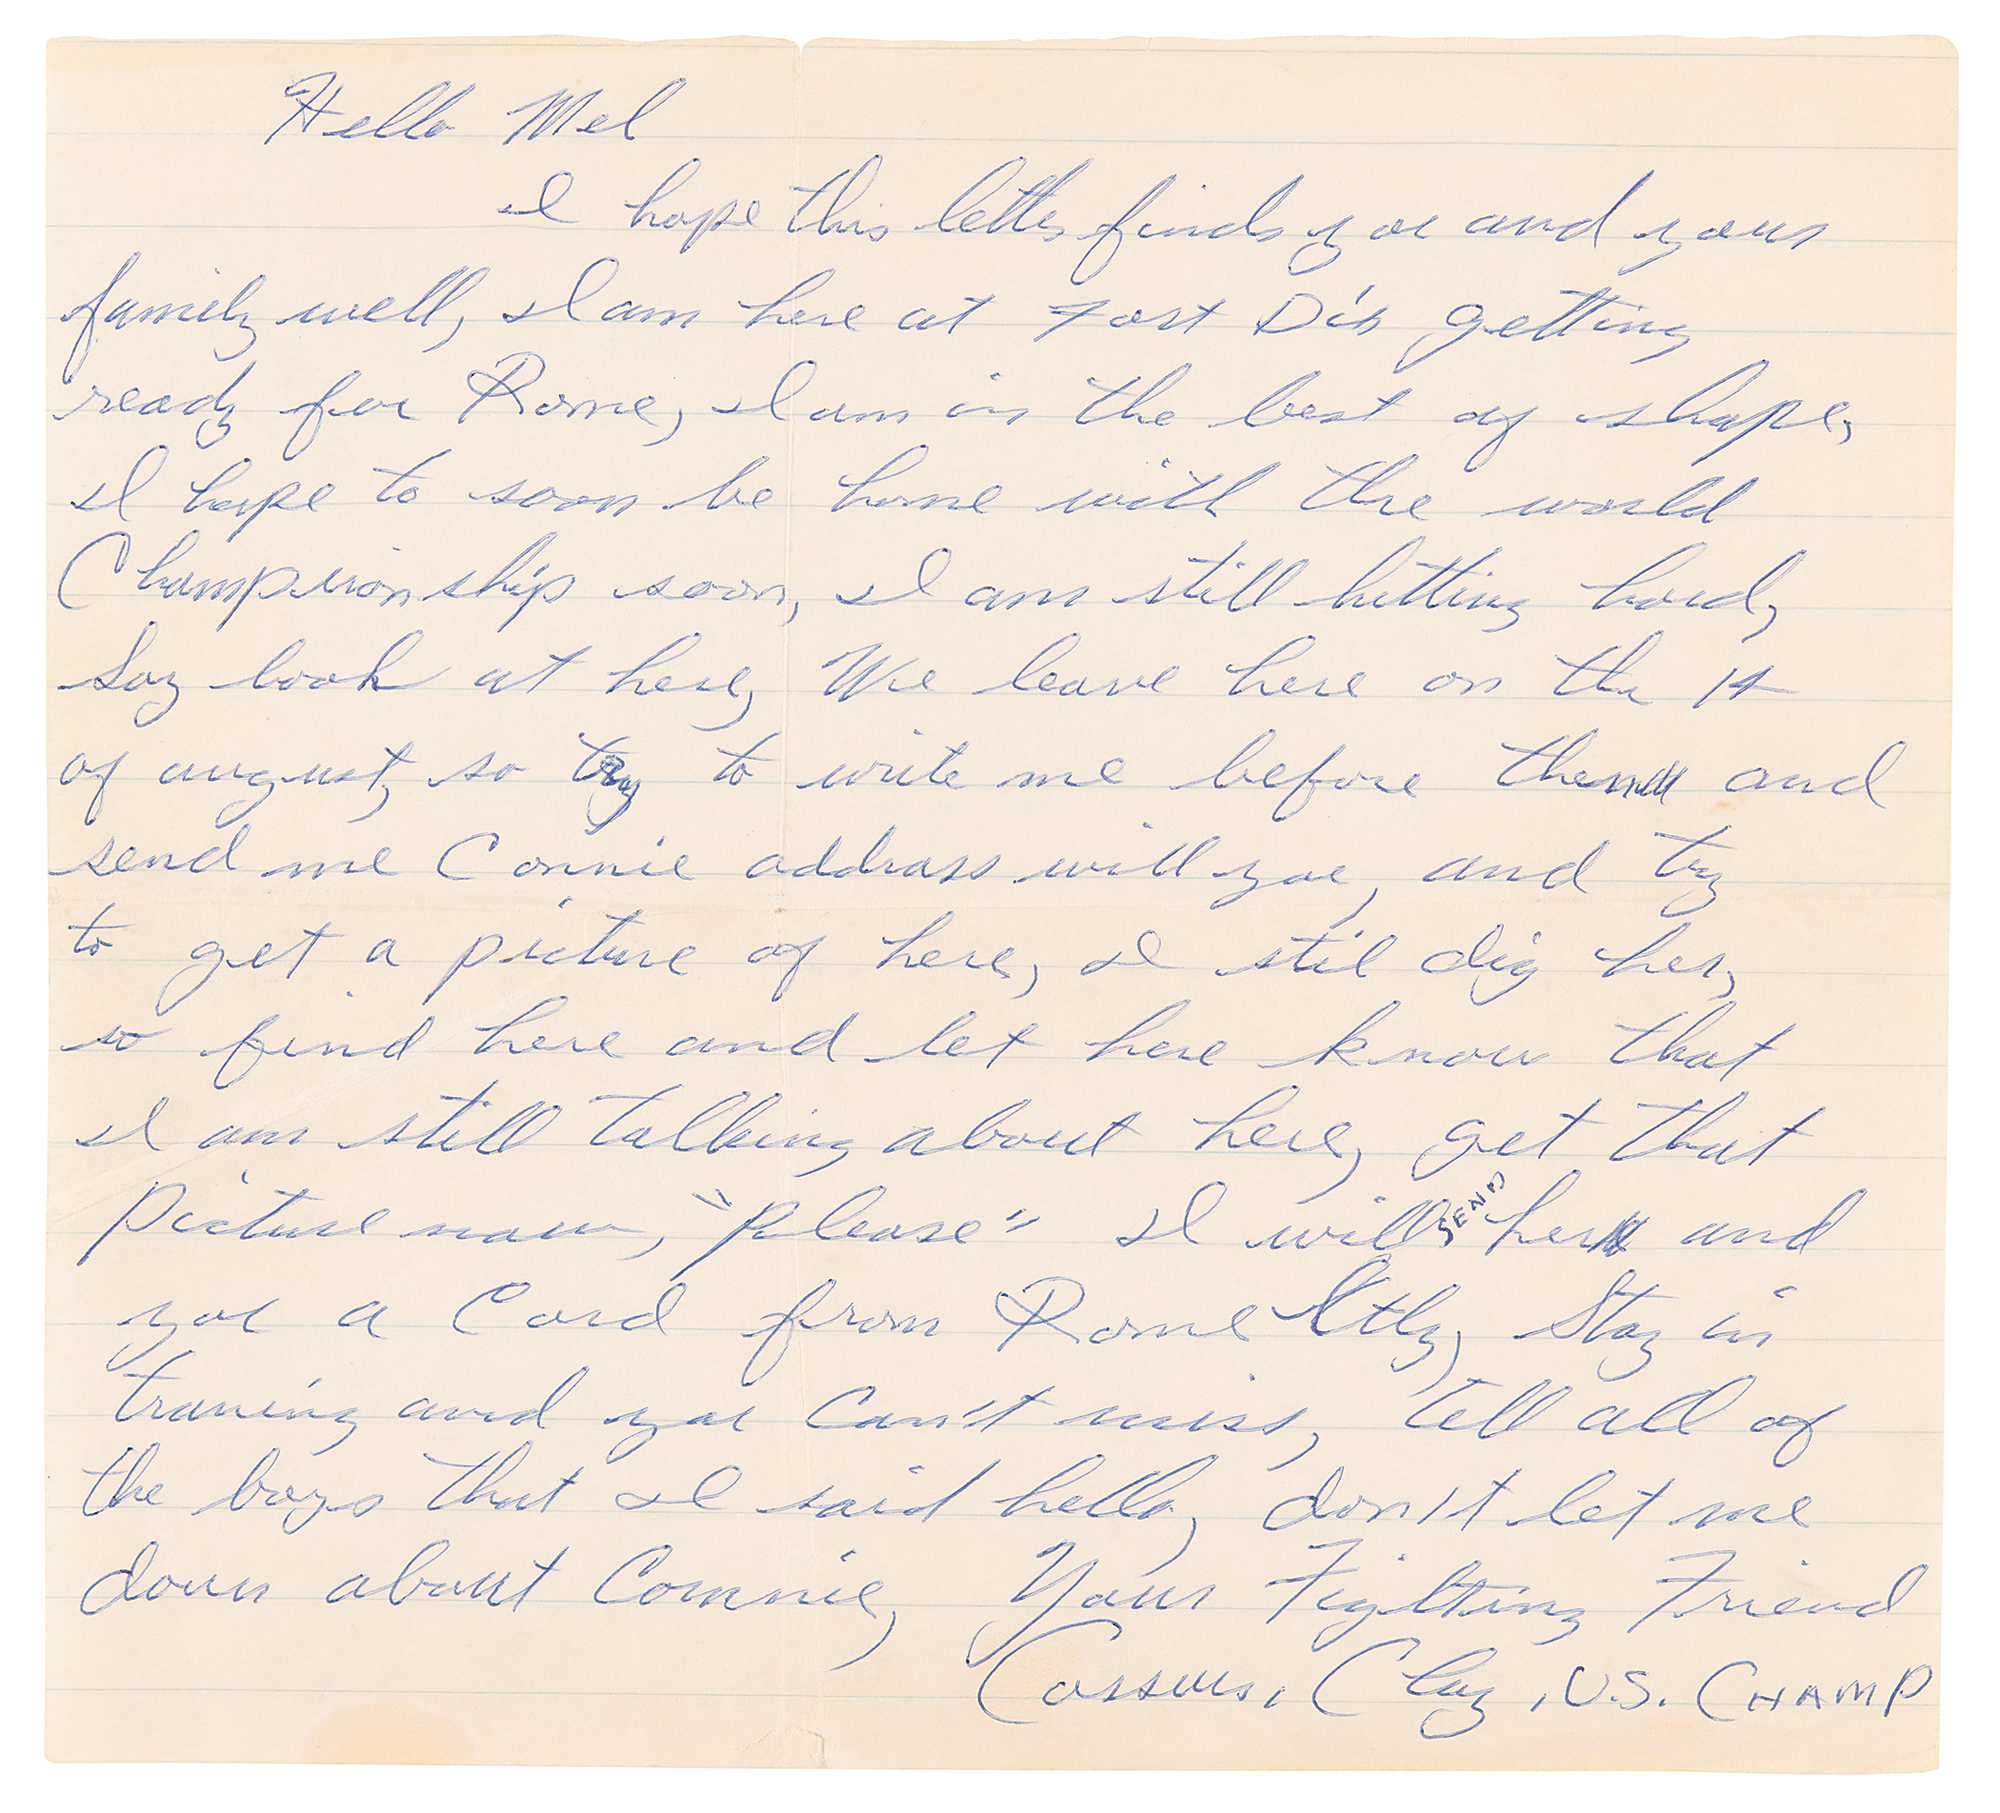 Hello Mel
I hope this letter finds you and your
family well, I am here at Fort Dix getting
ready for Rome, I am in the best of shape,
I hope to soon be home with the world
Championship soon, I am still hitting hard,
Say look at here, We leave here on the 14
of august, so try to write me before then and
send me Connie address will you, and try
to get a picture of here, I stil dig her,
so find here and let here know that
I am still talking about here, get that
Picture now, "please" I will SEND her and
you a Card from Rome Itly, Stay in
traning and you Can't miss, tell all of
the boys that I said hello, don't let me
down about Connie, Your Fighting Friend
Cassius, Clay, U.S. CHAMP